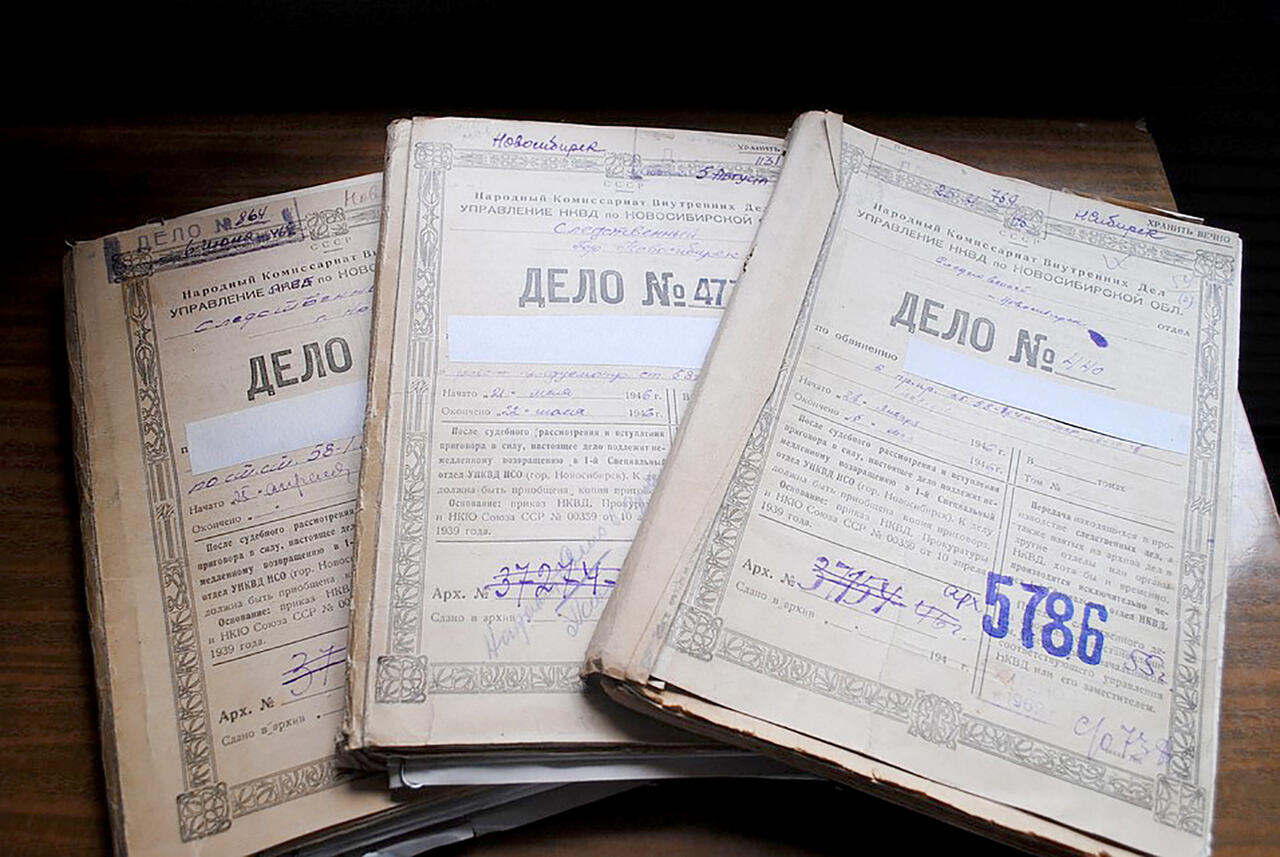 ДЕЛО № 864
6 июня 46
Нов
СССР
Народный Комиссариат Внутренних
УПРАВЛЕНИЕ НКВД по НОВОСИ
Следственн
г. Но
ДЕЛО
по ст.ст. 58-1
Начато 25 апреля
Окончено
После судебного рассмотрения
приговора в силу, настоящее дело
медленному возвращению в 1-й
отдел УНКВД НСО (гор. Новоси
должна быть приобщена копия
Основание: приказ НКВД,
и НКЮ Союза ССР № 00
1939 года.
Арх. № 37
Сдано в архив
Новосибирск
ХРАНИТЬ
1131
5 Августа
СССР
Народный Комиссариат Внутренних Дел
УПРАВЛЕНИЕ НКВД по НОВОСИБИРСКОЙ
Следственный
гор. Новосибирск
ДЕЛО № 477
Начато 21 мая 1946 г.
Окончено 22 июля 1946 г.
В
После судебного рассмотрения и вступления
приговора в силу, настоящее дело подлежит не-
медленному возвращению в 1-й Специальный
отдел УНКВД НСО (гор. Новосибирск). К
должна быть приобщена копия приго
Основание: приказ НКВД, Прокур
и НКЮ Союза ССР № 00359 от 10 а
1939 года.
Арх. № 37274
Сдано в архив
25 XI 759
06
Н Сибирск
ХРАНИТЬ ВЕЧНО
СССР
Народный Комиссариат Внутренних Дел
УПРАВЛЕНИЕ НКВД по НОВОСИБИРСКОЙ ОБЛ.
Следственный отдел
г. Новосибирск
ДЕЛО № 440
по обвинению
Начато 28 января 1946 г.
Окончено 1946 г.
В томах
Том №
После судебного рассмотрения и вступления
приговора в силу, настоящее дело подлежит не-
медленному возвращению в 1-й Специальный
отдел УНКВД НСО (гор. Новосибирск). К делу
должна быть приобщена копия приговора.
Основание: приказ НКВД, Прокуратуры
и НКЮ Союза ССР № 00359 от 10 апреля
1939 года.
Передача находящихся в про-
изводстве следственных дел, а
также взятых из архива дел в
другие отделы или органы
НКВД, хотя бы и временно,
производится исключительно че-
отдел НКВД.
соответствующего управления
НКВД или его заместителем.
Арх. № 37157 46 г.
арх 5786
55 г.
Сдано в архив
194 г.
1962
с/о 738